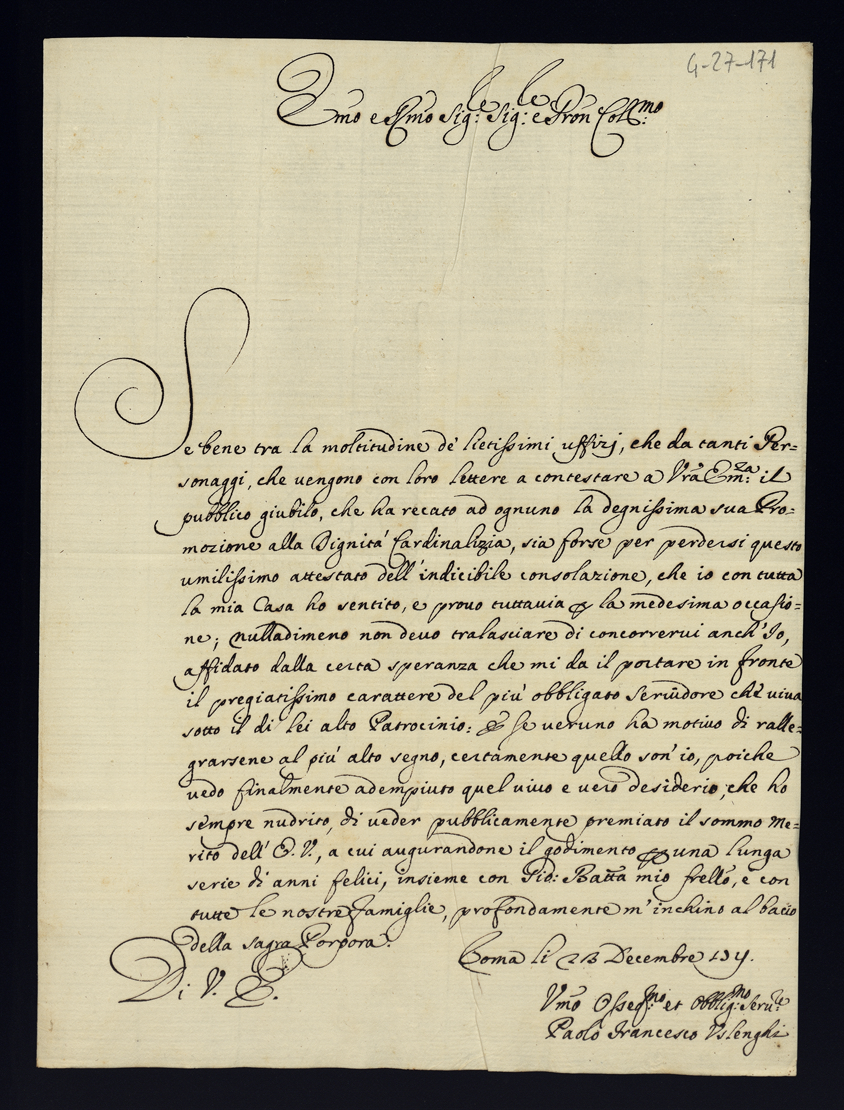 G-27-171
Emo e Rmo Sig:re Sig:re e Pron Coll:mo
Se bene tra la moltitudine de' lietissimi uffizj, che da tanti Per=
sonaggi, che vengono con loro lettere a contestare a Vra Em:za il
pubblico giubilo, che ha recato ad ognuno la degnissima sua Pro=
mozione alla Dignità Cardinalizia, sia forse per perdersi questo
umilissimo attestato dell'indicibile consolazione, che io con tutta
la mia Casa ho sentito, e provo tuttavia p la medesima occasio=
ne; nulladimeno non devo tralasciare di concorrervi anch'Io,
affidato dalla certa speranza che mi da il portare in fronte
il pregiatissimo carattere del più obbligato Servidore chè viva
sotto il di lei alto Patrocinio: E se veruno ha motivo di ralle=
grarsene al più alto segno, certamente quello son'io, poiche
vedo finalmente adempiuto quel vivo e vero desiderio, che ho
sempre nudrito, di veder pubblicamente premiato il sommo Me=
rito dell'E.V., a cui augurandone il godimento p una lunga
serie di anni felici, insieme con Gio: Batta mio frello, e con
tutte le nostre famiglie, profondamente m'inchino al bacio
della sagra Porpora.
Roma li 23 Decembre
Di V. E.
Vmo Osseq:mo et Obblig:mo Seru:re
Paolo Francesco